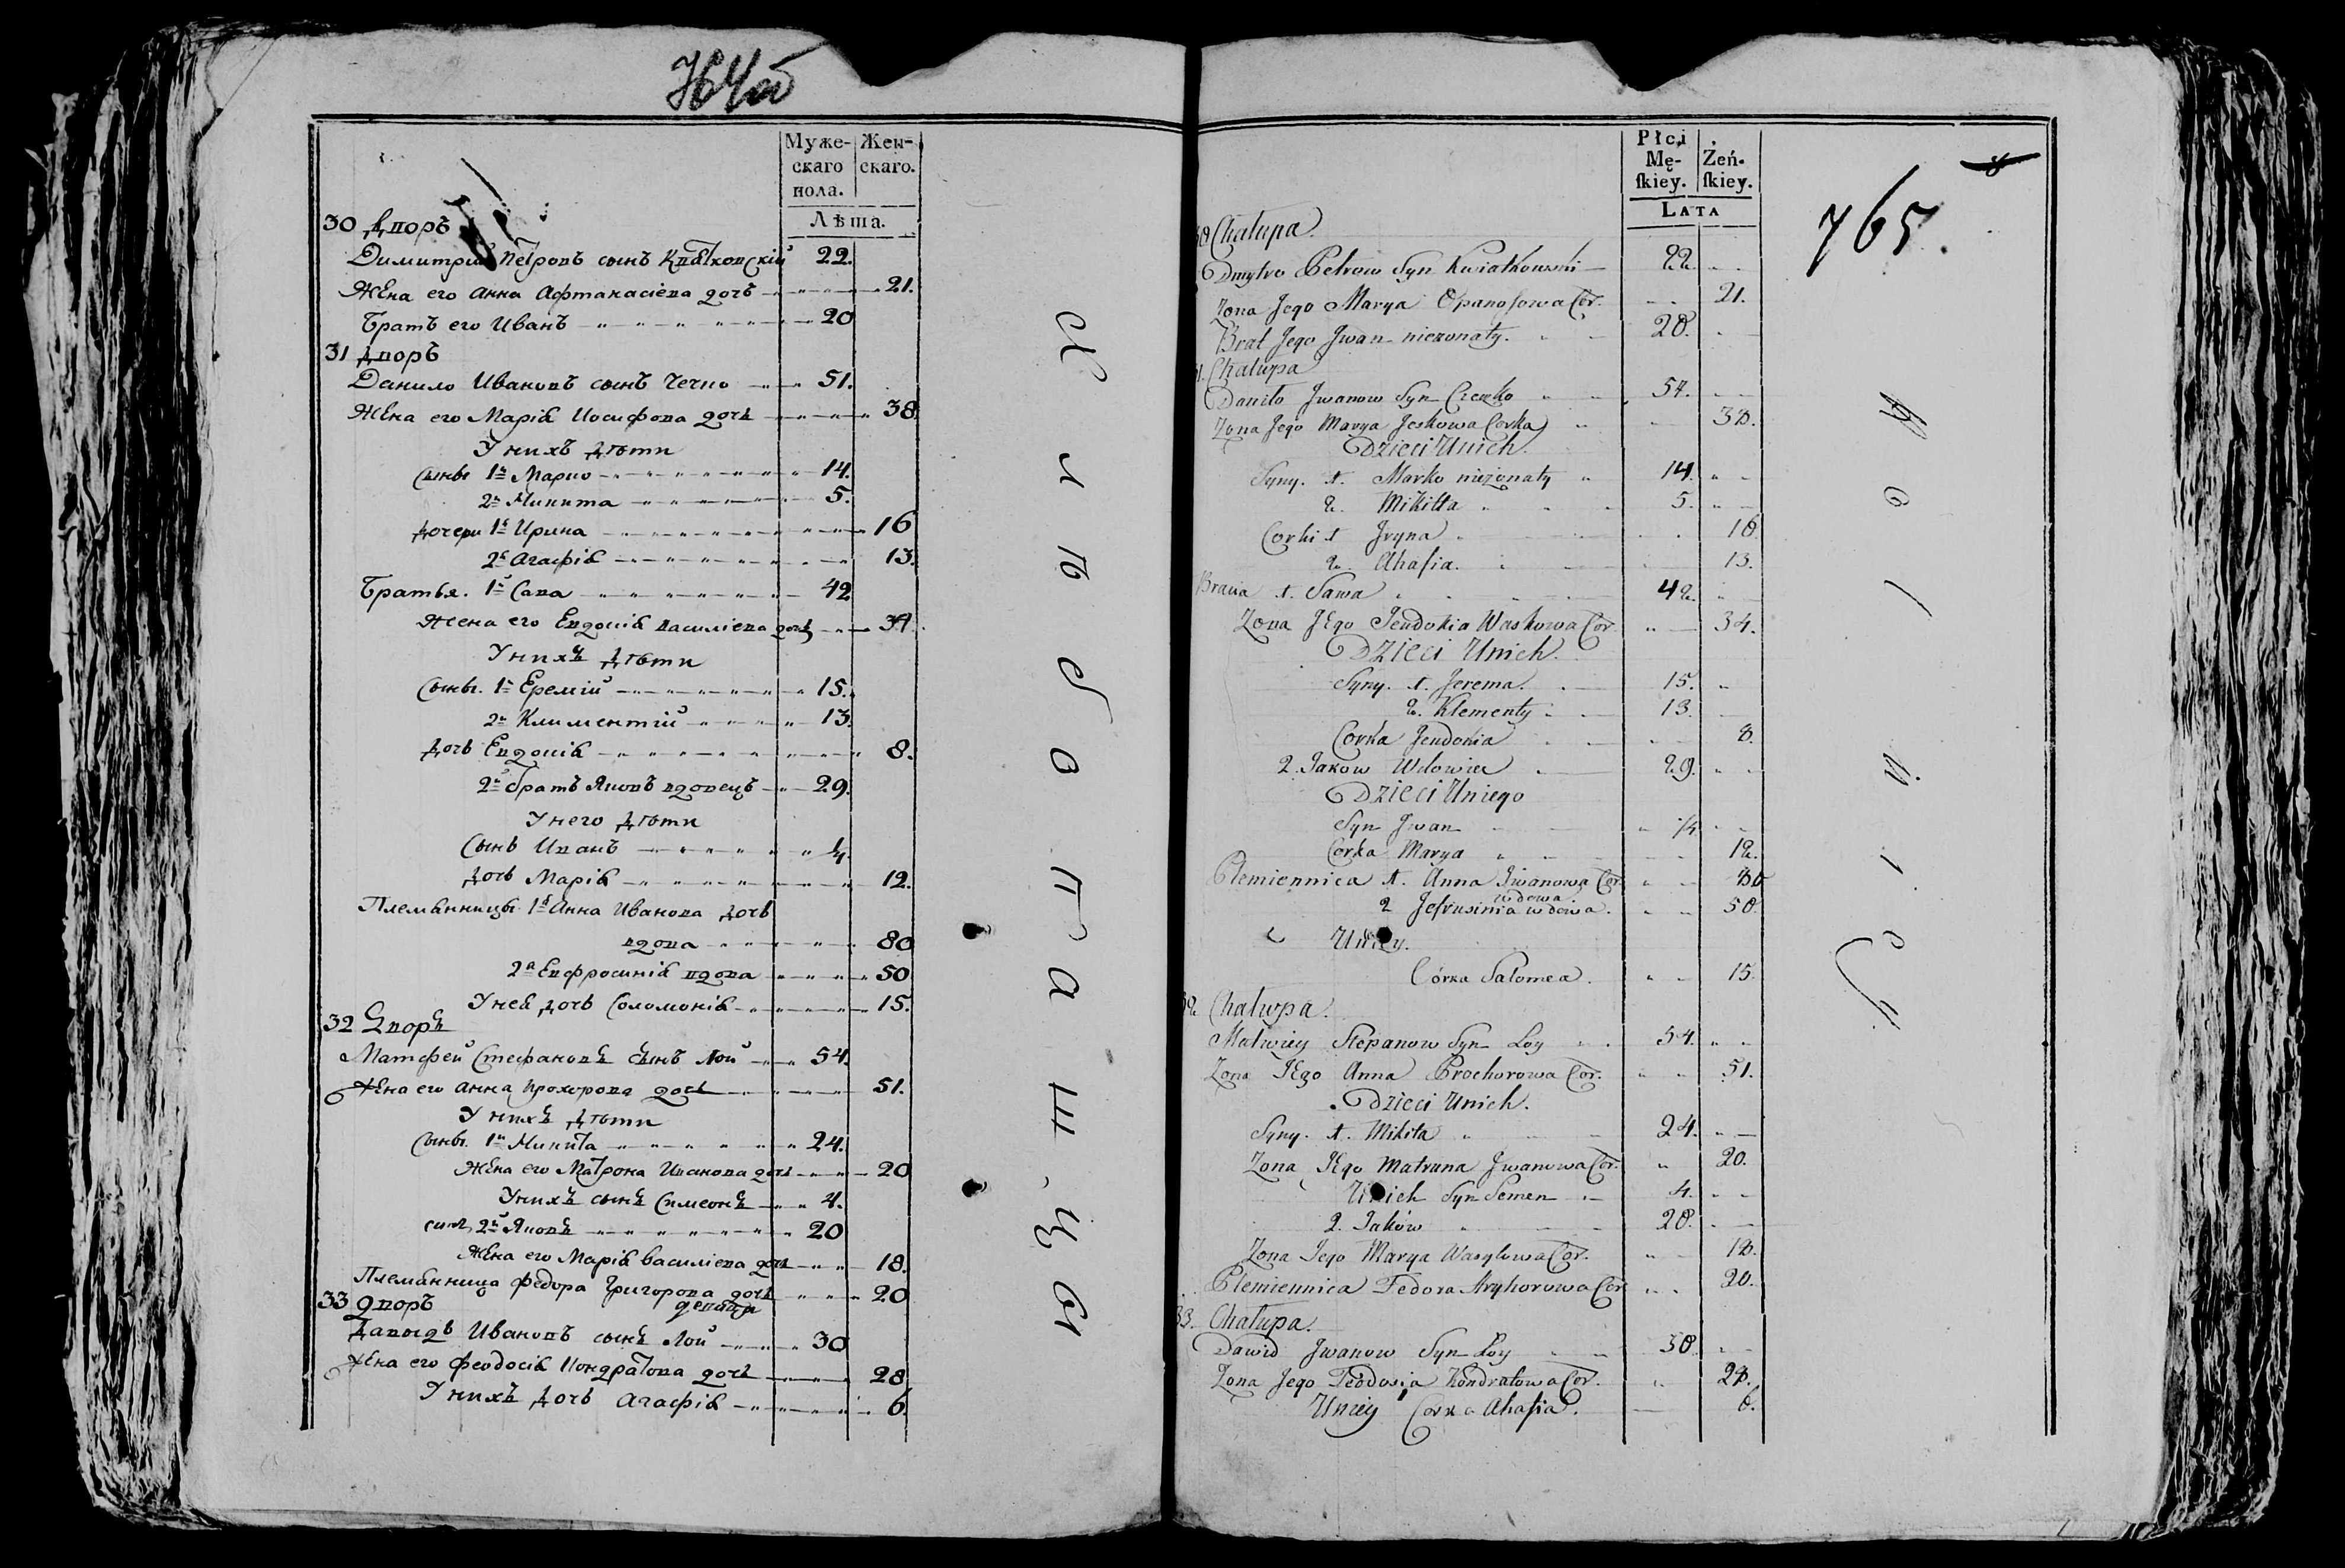 764об
Муже-
скаго
пола.
Жен-
скаго.
Лѣта.
30 Дворъ
Димитрий Петровъ сынъ Квятковскій 22.
Жена его Анна Афтанасіева дочь 21.
Братъ его Иванъ 20
31 Дворъ
Данило Ивановъ сынъ Чечко 51.
Жена его Марія Иосифова дочь 38.
У нихъ дѣти
Сыны 1й Марко 14.
2й Микита 5.
Дочери 1я Ирина 16
2я Агафія 13.
Братья. 1й Сава 42
Жена его Евдокія Василіева дочь 34.
У нихъ дѣти
Сыны. 1й Еремій 15.
2й Климентій 13.
Дочь Евдокія 8.
2й братъ Яковъ вдовецъ 29.
У него дѣти
Сынъ Иванъ 1/4.
Дочь Марія 12.
Племянницы 1я Анна Иванова дочь
вдова 80
2я Евфросинія вдова 50
У нея дочь Соломонія 15.
32 Дворъ
Матфей Стефановъ сынъ Лой 54.
Жена его Анна Прохорова дочь 51.
У нихъ дѣти
Сыны. 1й Микита 24.
Жена его Матрона Иванова дочь 20
У нихъ сынъ Симеонъ 4.
2й Яковъ 20
Жена его Марія Василіева дочь 18.
Племянница Федора Григорова дочь 20
девица
33 Дворъ
Давыдъ Ивановъ сынъ Лой 30
Жена его Феодосія Кондратова дочь 28
У нихъ дочь Агафія 6.
Płci
Mę-
ſkiey.
Żeń-
ſkiey.
LATA
765.
Chałupa.
Dmytro Petrow Syn Kwiatkowski 22.
Zona Jego Marya Opanosowa Cor. 21.
Brat Jego Jwan niezonaty. 20.
Chałupa
Daniło Jwanow Syn Czeczko 54.
Zona Jego Marya Jeskowa Corka 38.
Dzieci Unich.
Syny. 1. Marko nieżonaty 14.
2. Mikitta 5.
Corki 1 Jryna 16
2. Ahafia. 13.
Bracia 1. Sawa 42.
Zona JEgo Jeudokia Waskowa Cor. 34.
Dzieci Unich.
Syny. 1. Jerema. 15.
2. Klementy 13.
Corka Jeudokia 8.
2. Jakow Wdowiec 29.
Dzieci Uniego
Syn Jwan 1/4
Corka Marya 12.
Plemiennica 1. Anna Jwanowa Cor. 80
wdowa.
2 Jefrusinia wdowa. 50.
Uniey.
Córka Salomea. 15.
32 Chałupa.
Matwiey Stepanow Syn Łoy 54.
Zona JEgo Anna Prochorowa Cor. 51.
Dzieci Unich.
Syny. 1. Mikita 24.
Zona JEgo Matruna Jwanowa Cor. 20.
Unich Syn Semen 4.
2. Jaków 20.
Zona Jego Marya Wasylowa Cor. 18.
Plemiennica Fedora Hryhorowa Cor 20.
33. Chałupa.
Dawid Jwanow Syn Łoy 30.
Zona Jego Teodosia Kondratowa Cor. 28.
Uniey Corka Ahafia. 6.